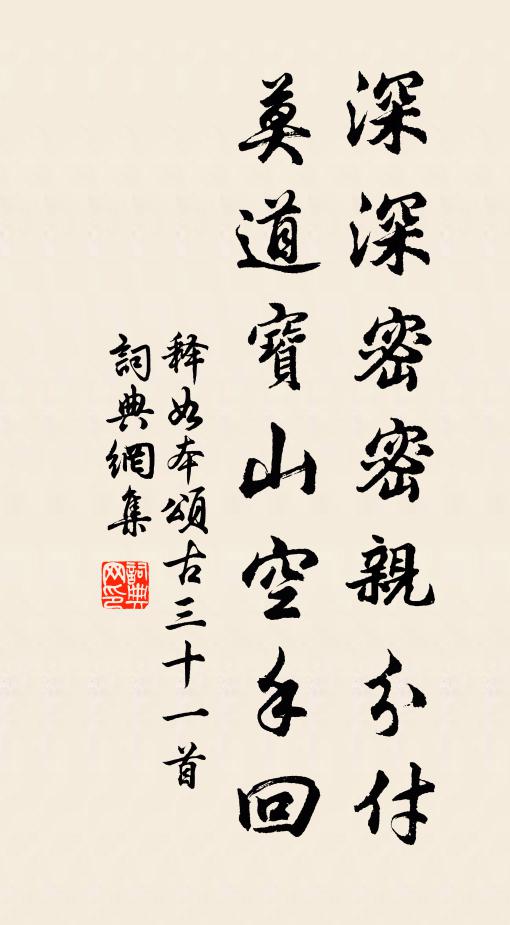 深深密密親分付
莫道寶山空手回
释如本頌古三十一首
詞典網集
詞典网印